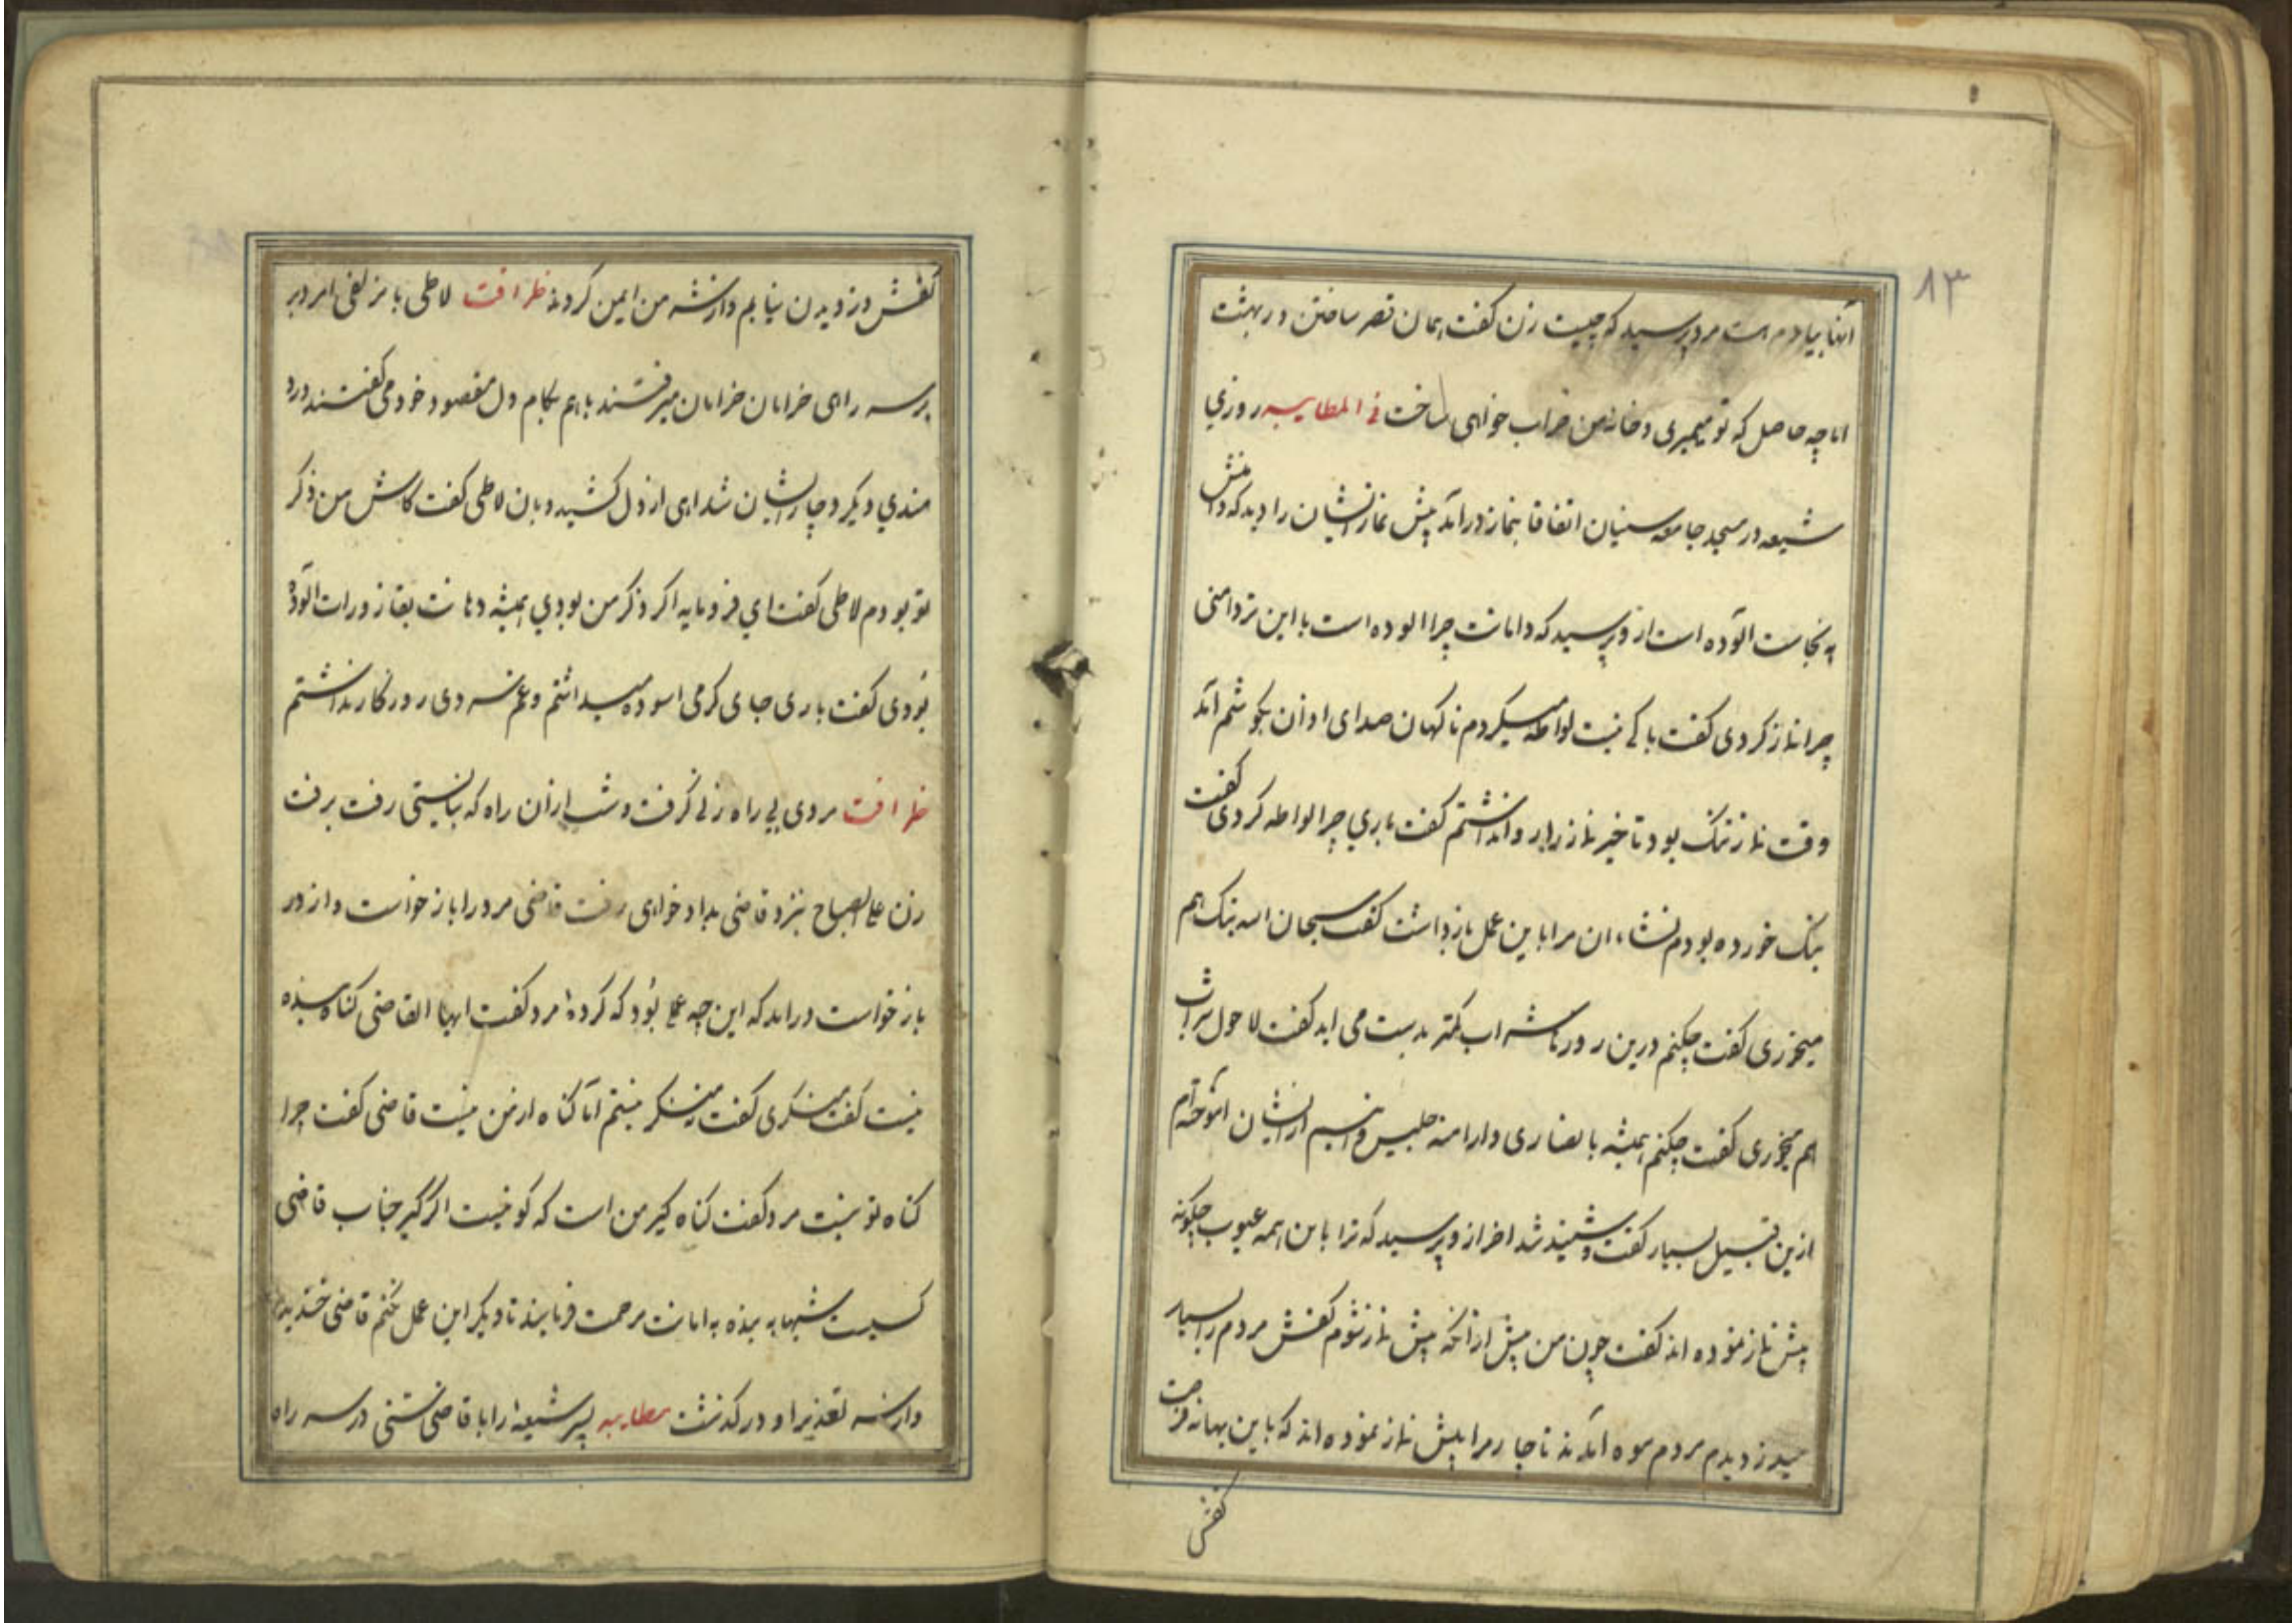 ۸۳
آنها بیادم است مرد پرسید که چیست زن کفت همان قصر ساختن در بهشت
اما چه حاصل که تو میمیری و خانه من خراب خواهی ساخت فی المطایبه روزي
شیعه در مسجد جامعه سنیان اتفاقا بنماز درآمد پیش نماز ایشان را دید که دامنش
به نجاست آلوده است از وی پرسید که دامانت چرا الوده است با این تر دامنی
چرا نماز کردی کفت باکی نیست لواطه میکردم ناکهان صدای اوان بکوشم آمد
وقت نماز تنک بود تاخیر نماز را روا نداشتم کفت باري چرا لواطه کردی کفت
بنک خورده بودم نشاء ان مرا باین عمل بازداشت کفت سبحان الله بنک هم
میخوری کفت چکنم درین روزها شراب کمتر بدست می اید کفت لا حول شراب
هم میخوری کفت چکنم همیشه با نصاری و ارامنه جلیس و انیسم از ایشان آموخته‌ام
ازین قبیل بسیار کفت و شنید شد اخر از وی پرسید که ترا با این همه عیوب چکونه
پیش نماز نموده اند کفت چون من پیش از آنکه پیش نماز شوم کفش مردم را بسیار
میدزدیدم مردم بستوه آمدند ناچار مرا پیش نماز نموده اند که باین بهانه فرصت
کفش
کفش دزدیدن نیابم و از شر من ایمن کردند ظرافت لاطی با مزلفی امرد بر
بر سر راهی خرامان خرامان میرفتند باهم بکام دل مقصود خود می کفتند درد
مندي دیکر دچار ایشان شد اهی از دل کشید و بان لاطی کفت کاش من ذکر
تو بودم لاطی کفت اي فرومایه اکر ذکر من بودي همیشه دهانت بقازورات آلوده
بودی کفت باری جای کرمی اسوده میداشتم و غم سردی روزکار نداشتم
ظرافت مردی پی راه زنی کرفت و شب از آن راه که نبایستی رفت برفت
زن علی الصباح بنزد قاضی بداد خواهی رفت قاضی مرد را باز خواست و از در
بازخواست درامد که این چه عملی بود که کردهٔ مرد کفت ایها القاضی کناه بنده
نیست کفت منکری کفت نه منکر نیستم اما کناه از من نیست قاضی کفت چرا
کناه تو نیست مرد کفت کناه کیر من است که کو نیست اکر کیر جناب قاضی
کسیست شبها به بنده به امانت مرحمت فرمایند تا دیکر این عمل نکنم قاضی خندید
و از سر تعذیر او در کذشت مطایبه پسر شیعهٔ را با قاضی سنی در سر راه